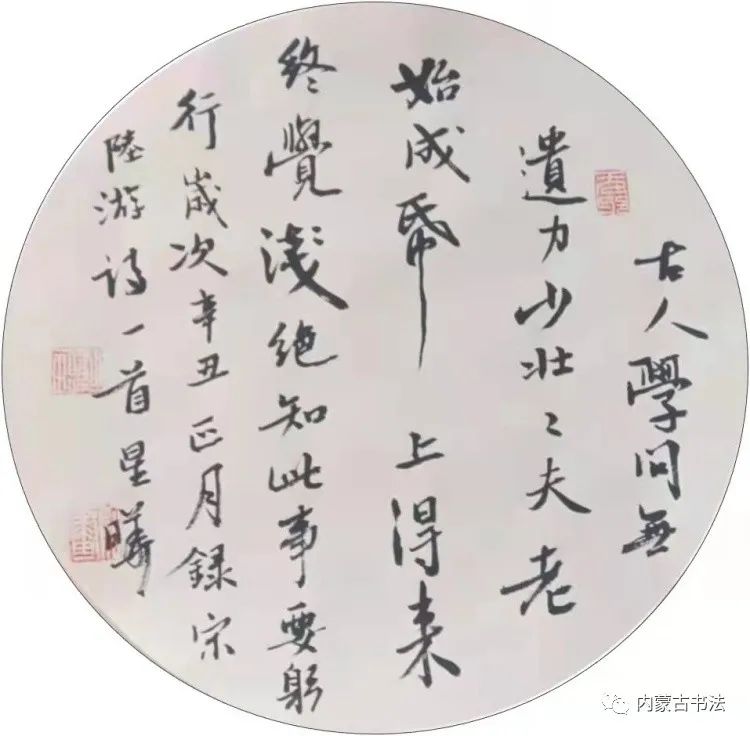 古人學問無
遺力少壯工夫老
始成帋上得来
終覺淺絶知此事要躬
行歲次辛丑正月録宋
陸游詩一首星曦
内蒙古书法